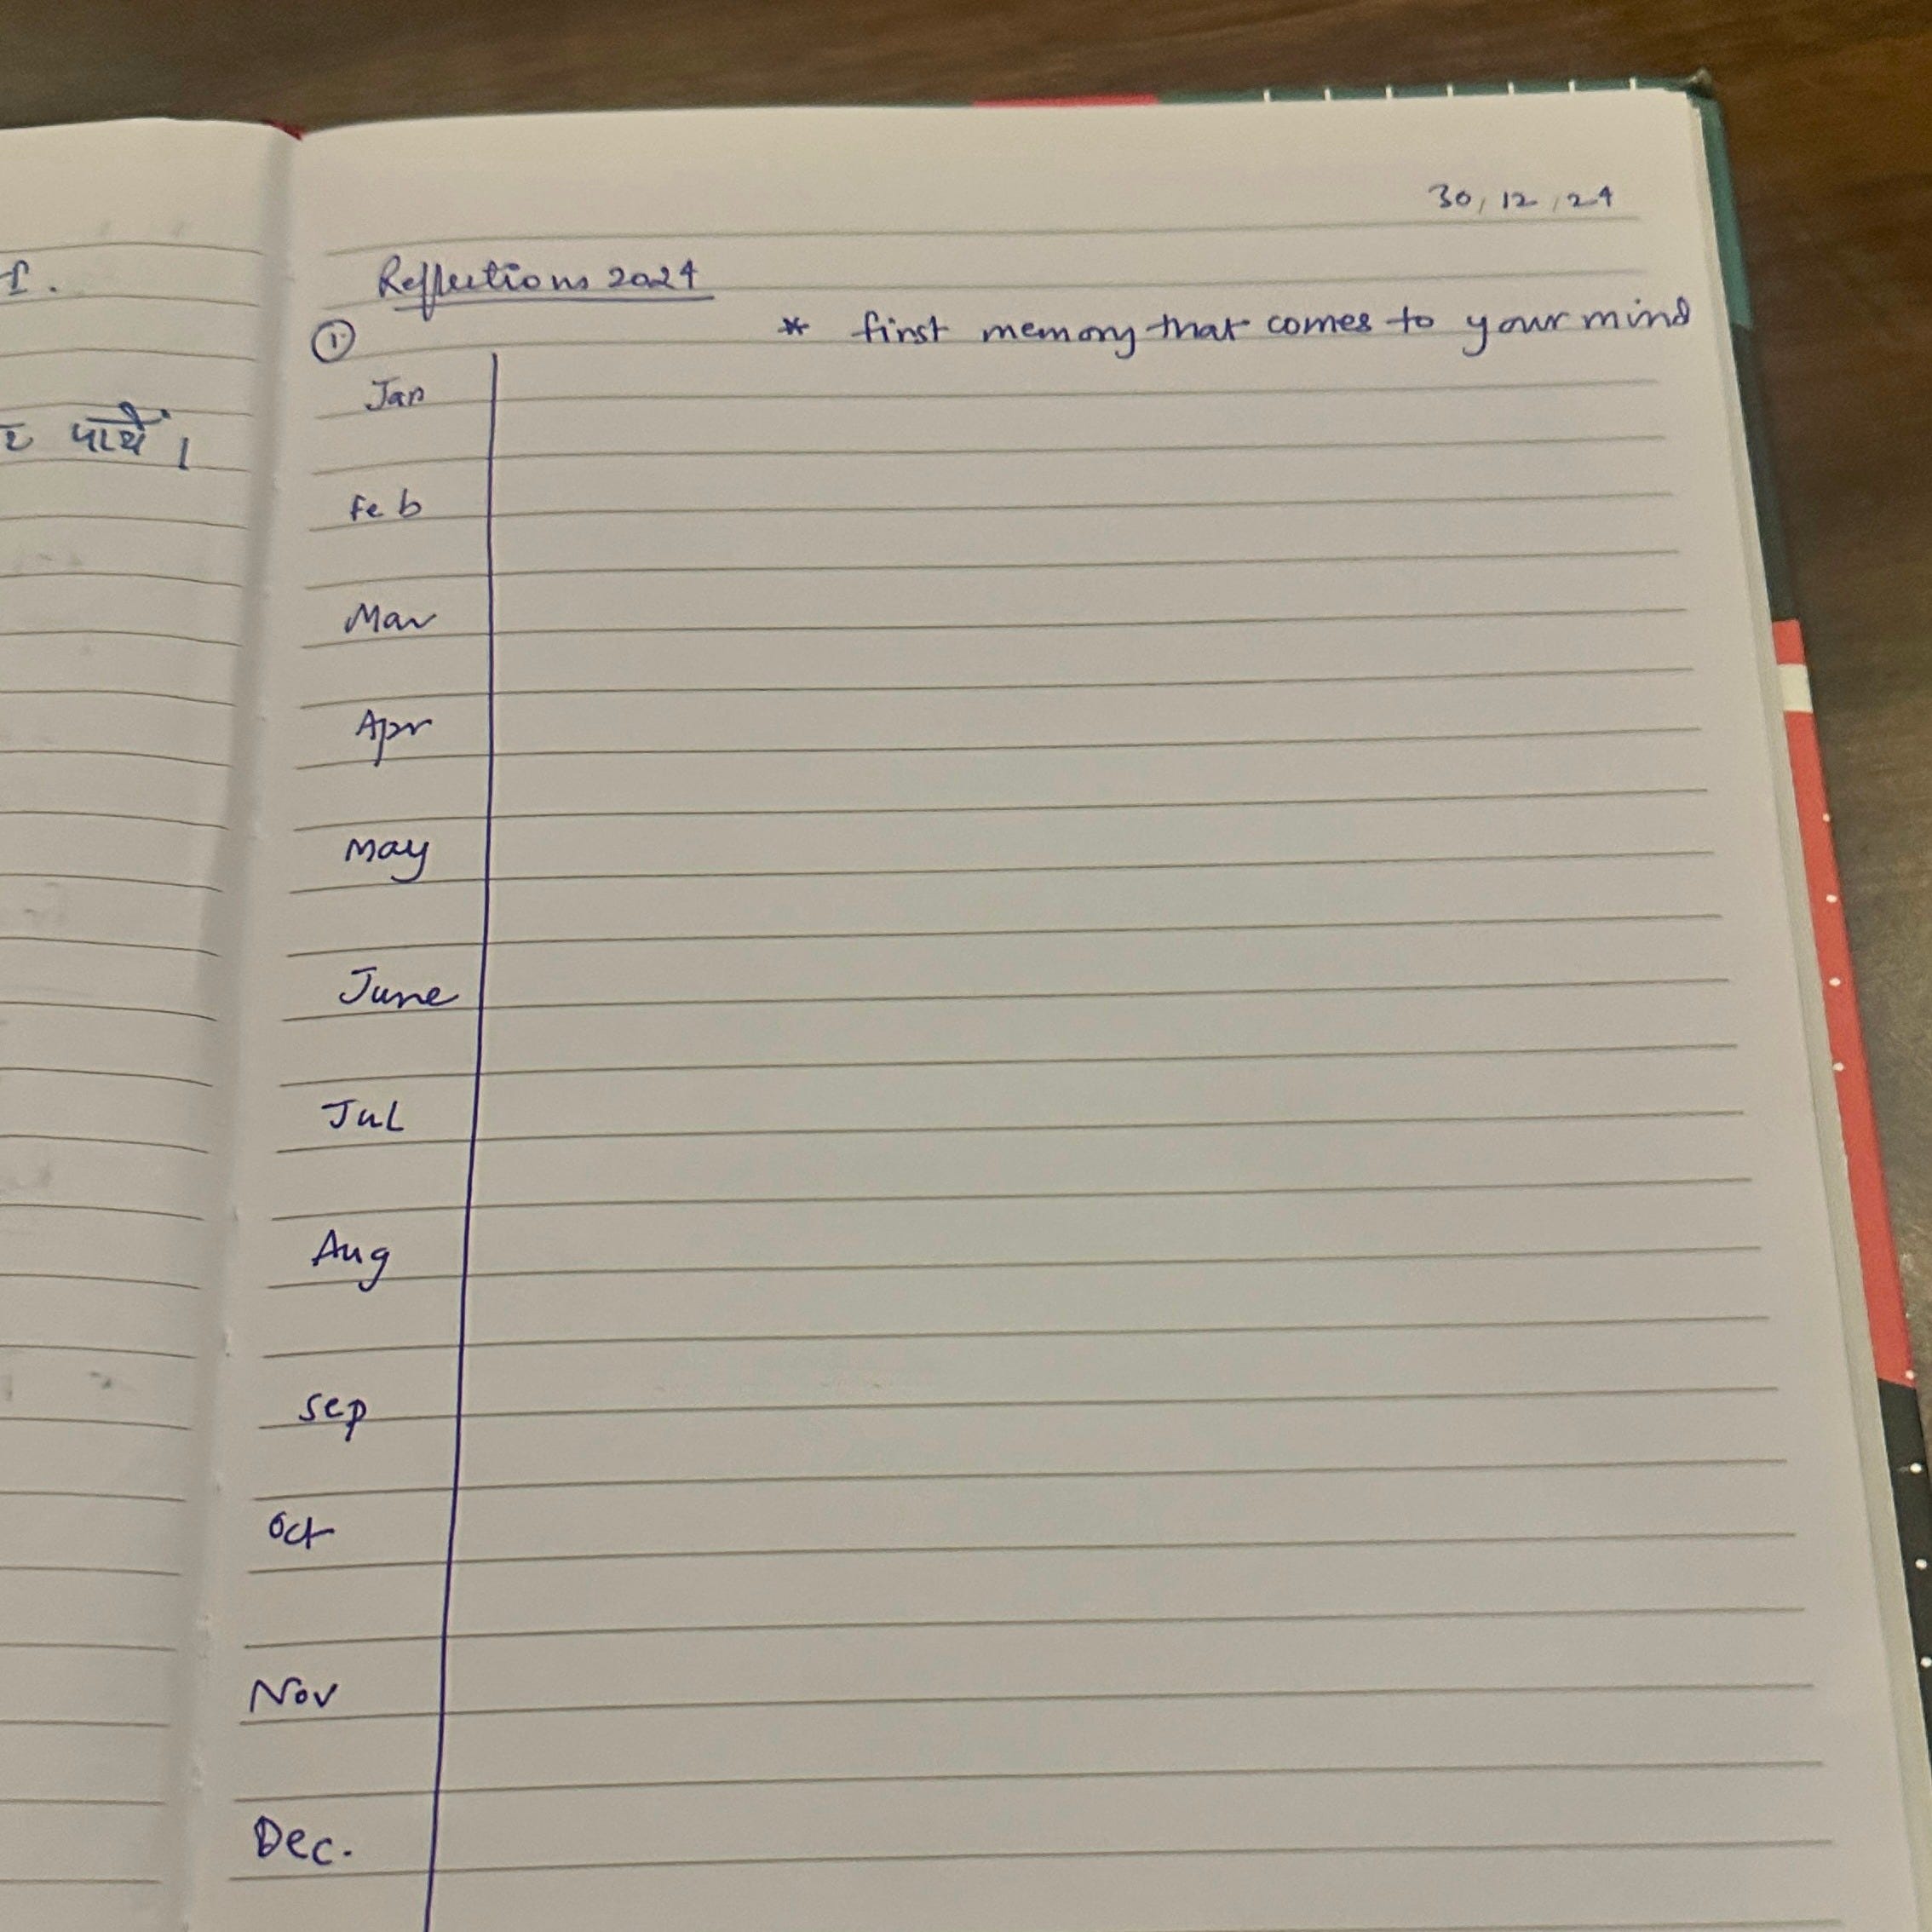 पाये।
30/12/24
Reflections 2024
① * first memory that comes to your mind
Jan
Feb
Mar
Apr
May
June
Jul
Aug
Sep
Oct
Nov
Dec.